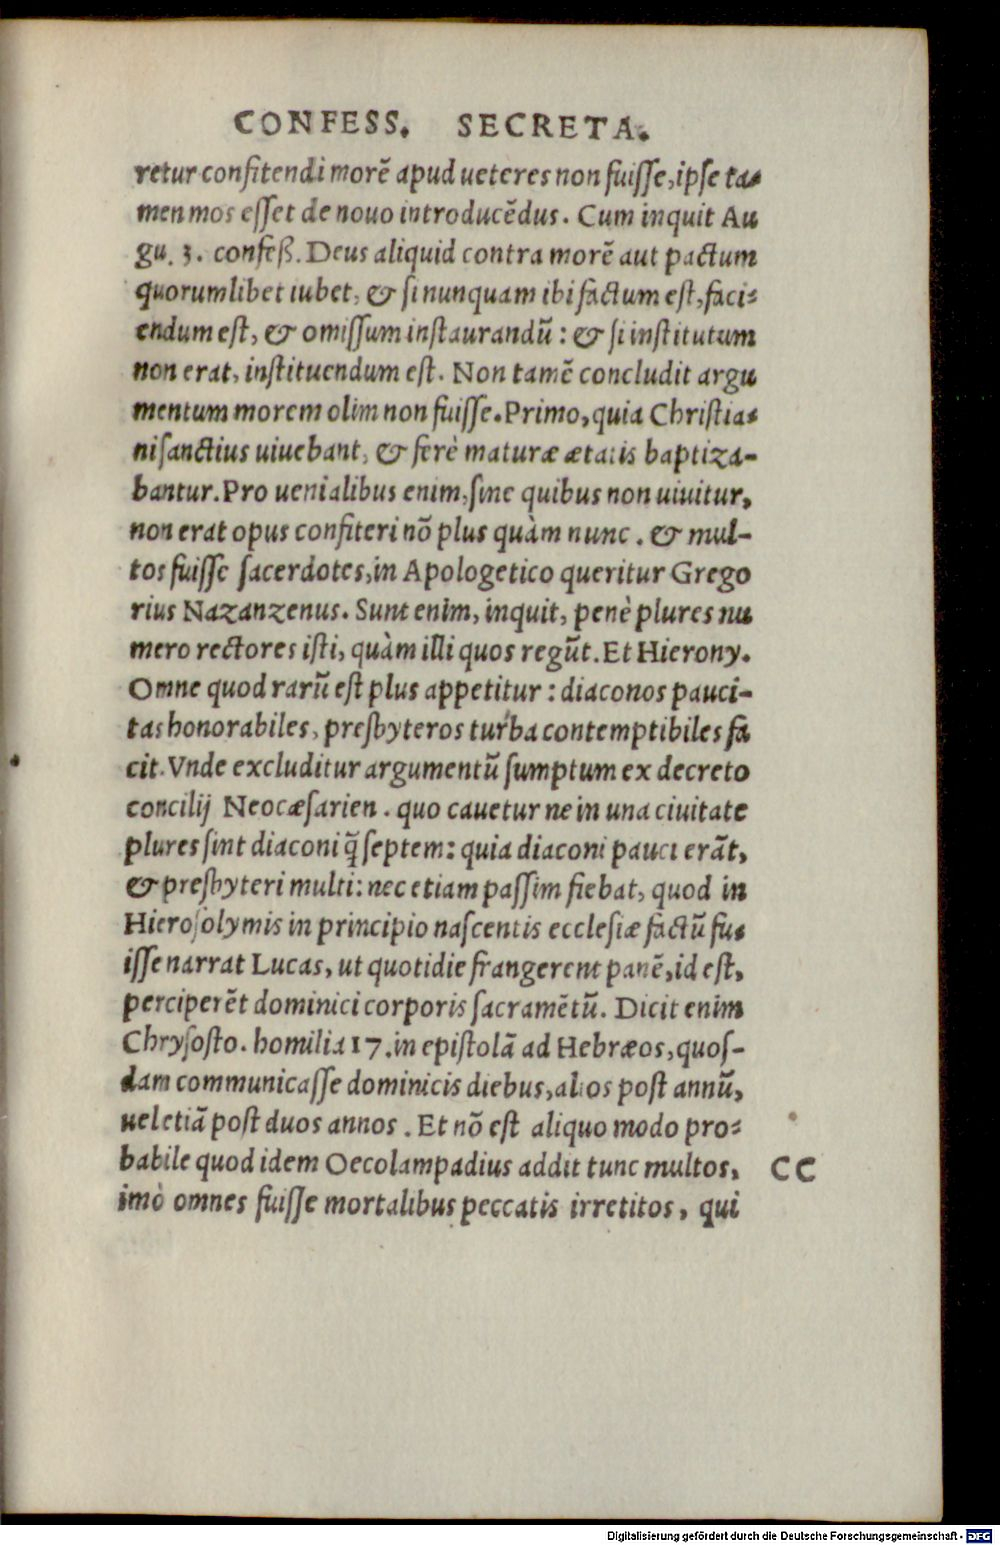 CONFESS. SECRETA.
retur confitendi morẽ apud ueteres non fuiſſe, ipſe ta⸗
men mos eſſet de nouo introducẽdus. Cum inquit Au
gu. 3. confeß. Deus aliquid contra morẽ aut pactum
quorumlibet iubet, & ſi nunquam ibi factum eſt, faci⸗
endum eſt, & omiſſum inſtaurandũ: & ſi inſtitutum
non erat, inſtituendum eſt. Non tamẽ concludit argu
mentum morem olim non fuiſſe. Primo, quia Chriſtia⸗
ni ſanctius uiuebant, & ferè maturæ ætatis baptiza-
bantur. Pro uenialibus enim, ſine quibus non uiuitur,
non erat opus confiteri nõ plus quàm nunc. & mul-
tos fuiſſe ſacerdotes, in Apologetico queritur Grego
rius Nazanzenus. Sunt enim, inquit, penè plures nu
mero rectores iſti, quàm illi quos regũt. Et Hierony.
Omne quod rarũ eſt plus appetitur: diaconos pauci-
tas honorabiles, preſbyteros turba contemptibiles fa
cit. Vnde excluditur argumentũ ſumptum ex decreto
concilij Neocæſarien. quo cauetur ne in una ciuitate
plures ſint diaconi q̃ ſeptem: quia diaconi pauci erãt,
& preſbyteri multi: nec etiam paſſim fiebat, quod in
Hieroſolymis in principio naſcentis eccleſiæ factũ fu⸗
iſſe narrat Lucas, ut quotidie frangerent panẽ, id eſt,
perciperẽt dominici corporis ſacramẽtũ. Dicit enim
Chryſoſto. homilia 17. in epiſtolã ad Hebræos, quoſ-
dam communicaſſe dominicis diebus, alios poſt annũ,
uel etiã poſt duos annos. Et nõ eſt aliquo modo pro⸗
babile quod idem Oecolampadius addit tunc multos, CC
imò omnes fuiſſe mortalibus peccatis irretitos, qui
Digitalisierung gefördert durch die Deutsche Forschungsgemeinschaft - DFG